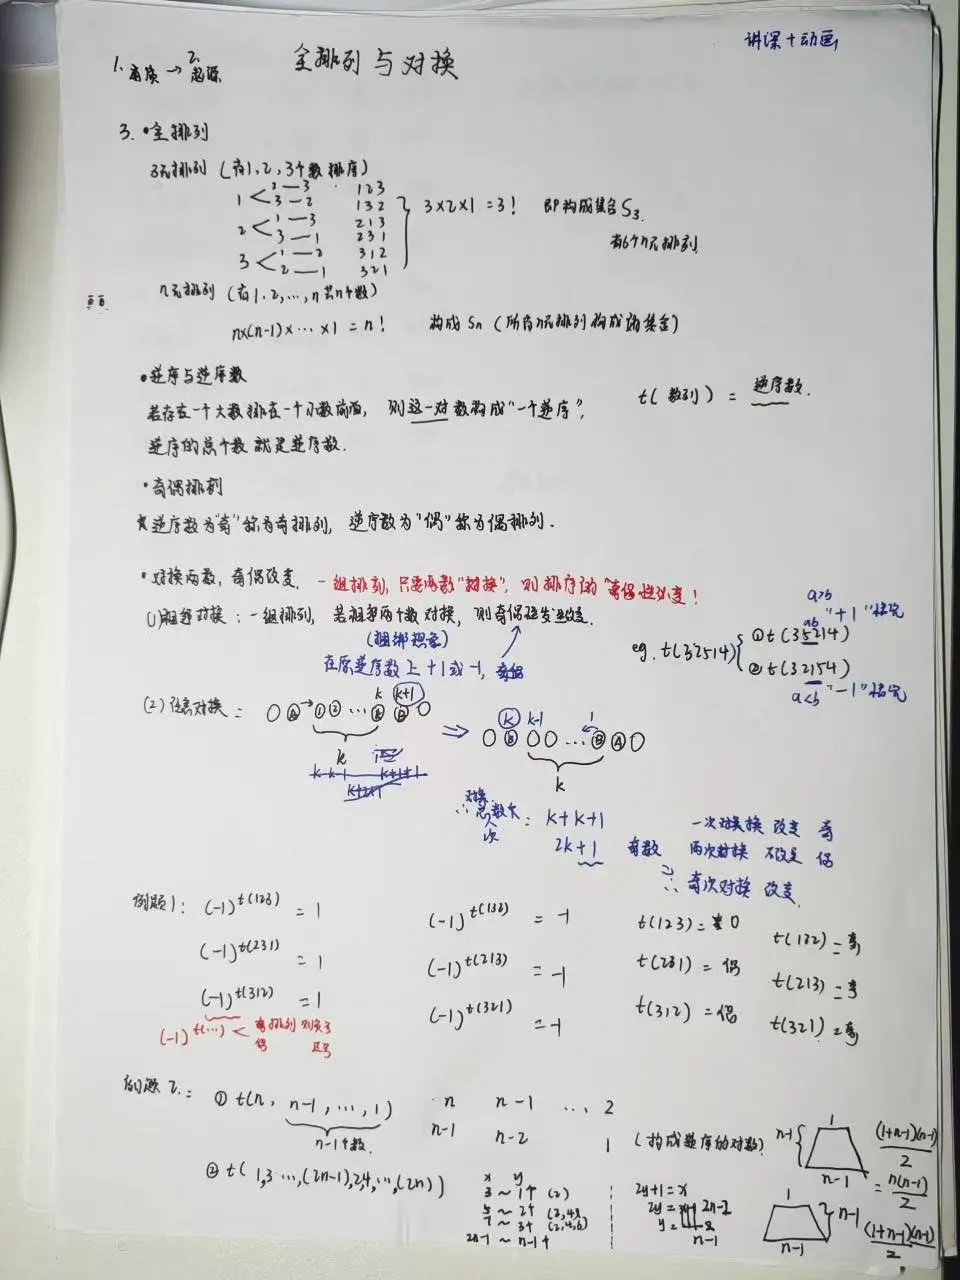 讲课+动画
全排列与对换
1. → 2. 起源
3. ·全排列
3元排列 (有1, 2, 3个数排序)
1 < 2—3 123
3—2 132
2 < 1—3 213
3—1 231
3 < 1—2 312
2—1 321
3×2×1=3! 即构成集合S₃.
有6个n元排列
n元排列 (有1, 2, …, n共n个数)
n×(n-1)×…×1=n! 构成Sn (所有n元排列构成的集合)
·逆序与逆序数
若存在一个大数排在一个小数前面, 则这一对数构成“一个逆序”,
t(数列) = 逆序数.
逆序的总个数就是逆序数.
·奇偶排列
逆序数为“奇”称为奇排列, 逆序数为“偶”称为偶排列.
·对换两数, 奇偶改变. 一组排列, 只要两数“对换”, 则排序的“奇偶性改变!
(1) 相邻对换: 一组排列, 若相邻两个数对换, 则奇偶性发生改变.
(捆绑思想)
在原逆序数上+1或-1, 奇偶
eg. t(32514) { ①t(35214)
②t(32154)
a>b
ab “+1”情况
a<b “-1”情况
(2) 任意对换:
k k+1
Ⓐ → ① ② … ⓚ Ⓑ
k
⇒
k k-1 1
… Ⓑ Ⓐ
k
∴ 对换总数次: k+k+1
2k+1 奇数
一次对换 改变 奇
两次对换 不改变 偶
∴ 奇次对换 改变.
例题1: (-1)^t(123) = 1 (-1)^t(132) = -1 t(123)=0 t(132)=奇
(-1)^t(231) = 1 (-1)^t(213) = -1 t(231)=偶 t(213)=奇
(-1)^t(312) = 1 (-1)^t(321) = -1 t(312)=偶 t(321)=奇
(-1)^t(…) < 奇排列 则负号
偶 正号
例题2: ① t(n, n-1, …, 1) n n-1 … 2
n-1个数 n-1 n-2 1 (构成逆序的对数)
n-1 { 1
n-1
(1+n-1)(n-1)/2
= n(n-1)/2
② t(1,3…,(2n-1),2,4,…,(2n))
x y
3 ~ 1个 (2)
5 ~ 2个 (2,4)
7 ~ 3个 (2,4,6)
2n-1 ~ n-1个
2y+1=x
2y= 2n-2
y=
n-1
1
n-1
n-1
(1+n-1)(n-1)/2